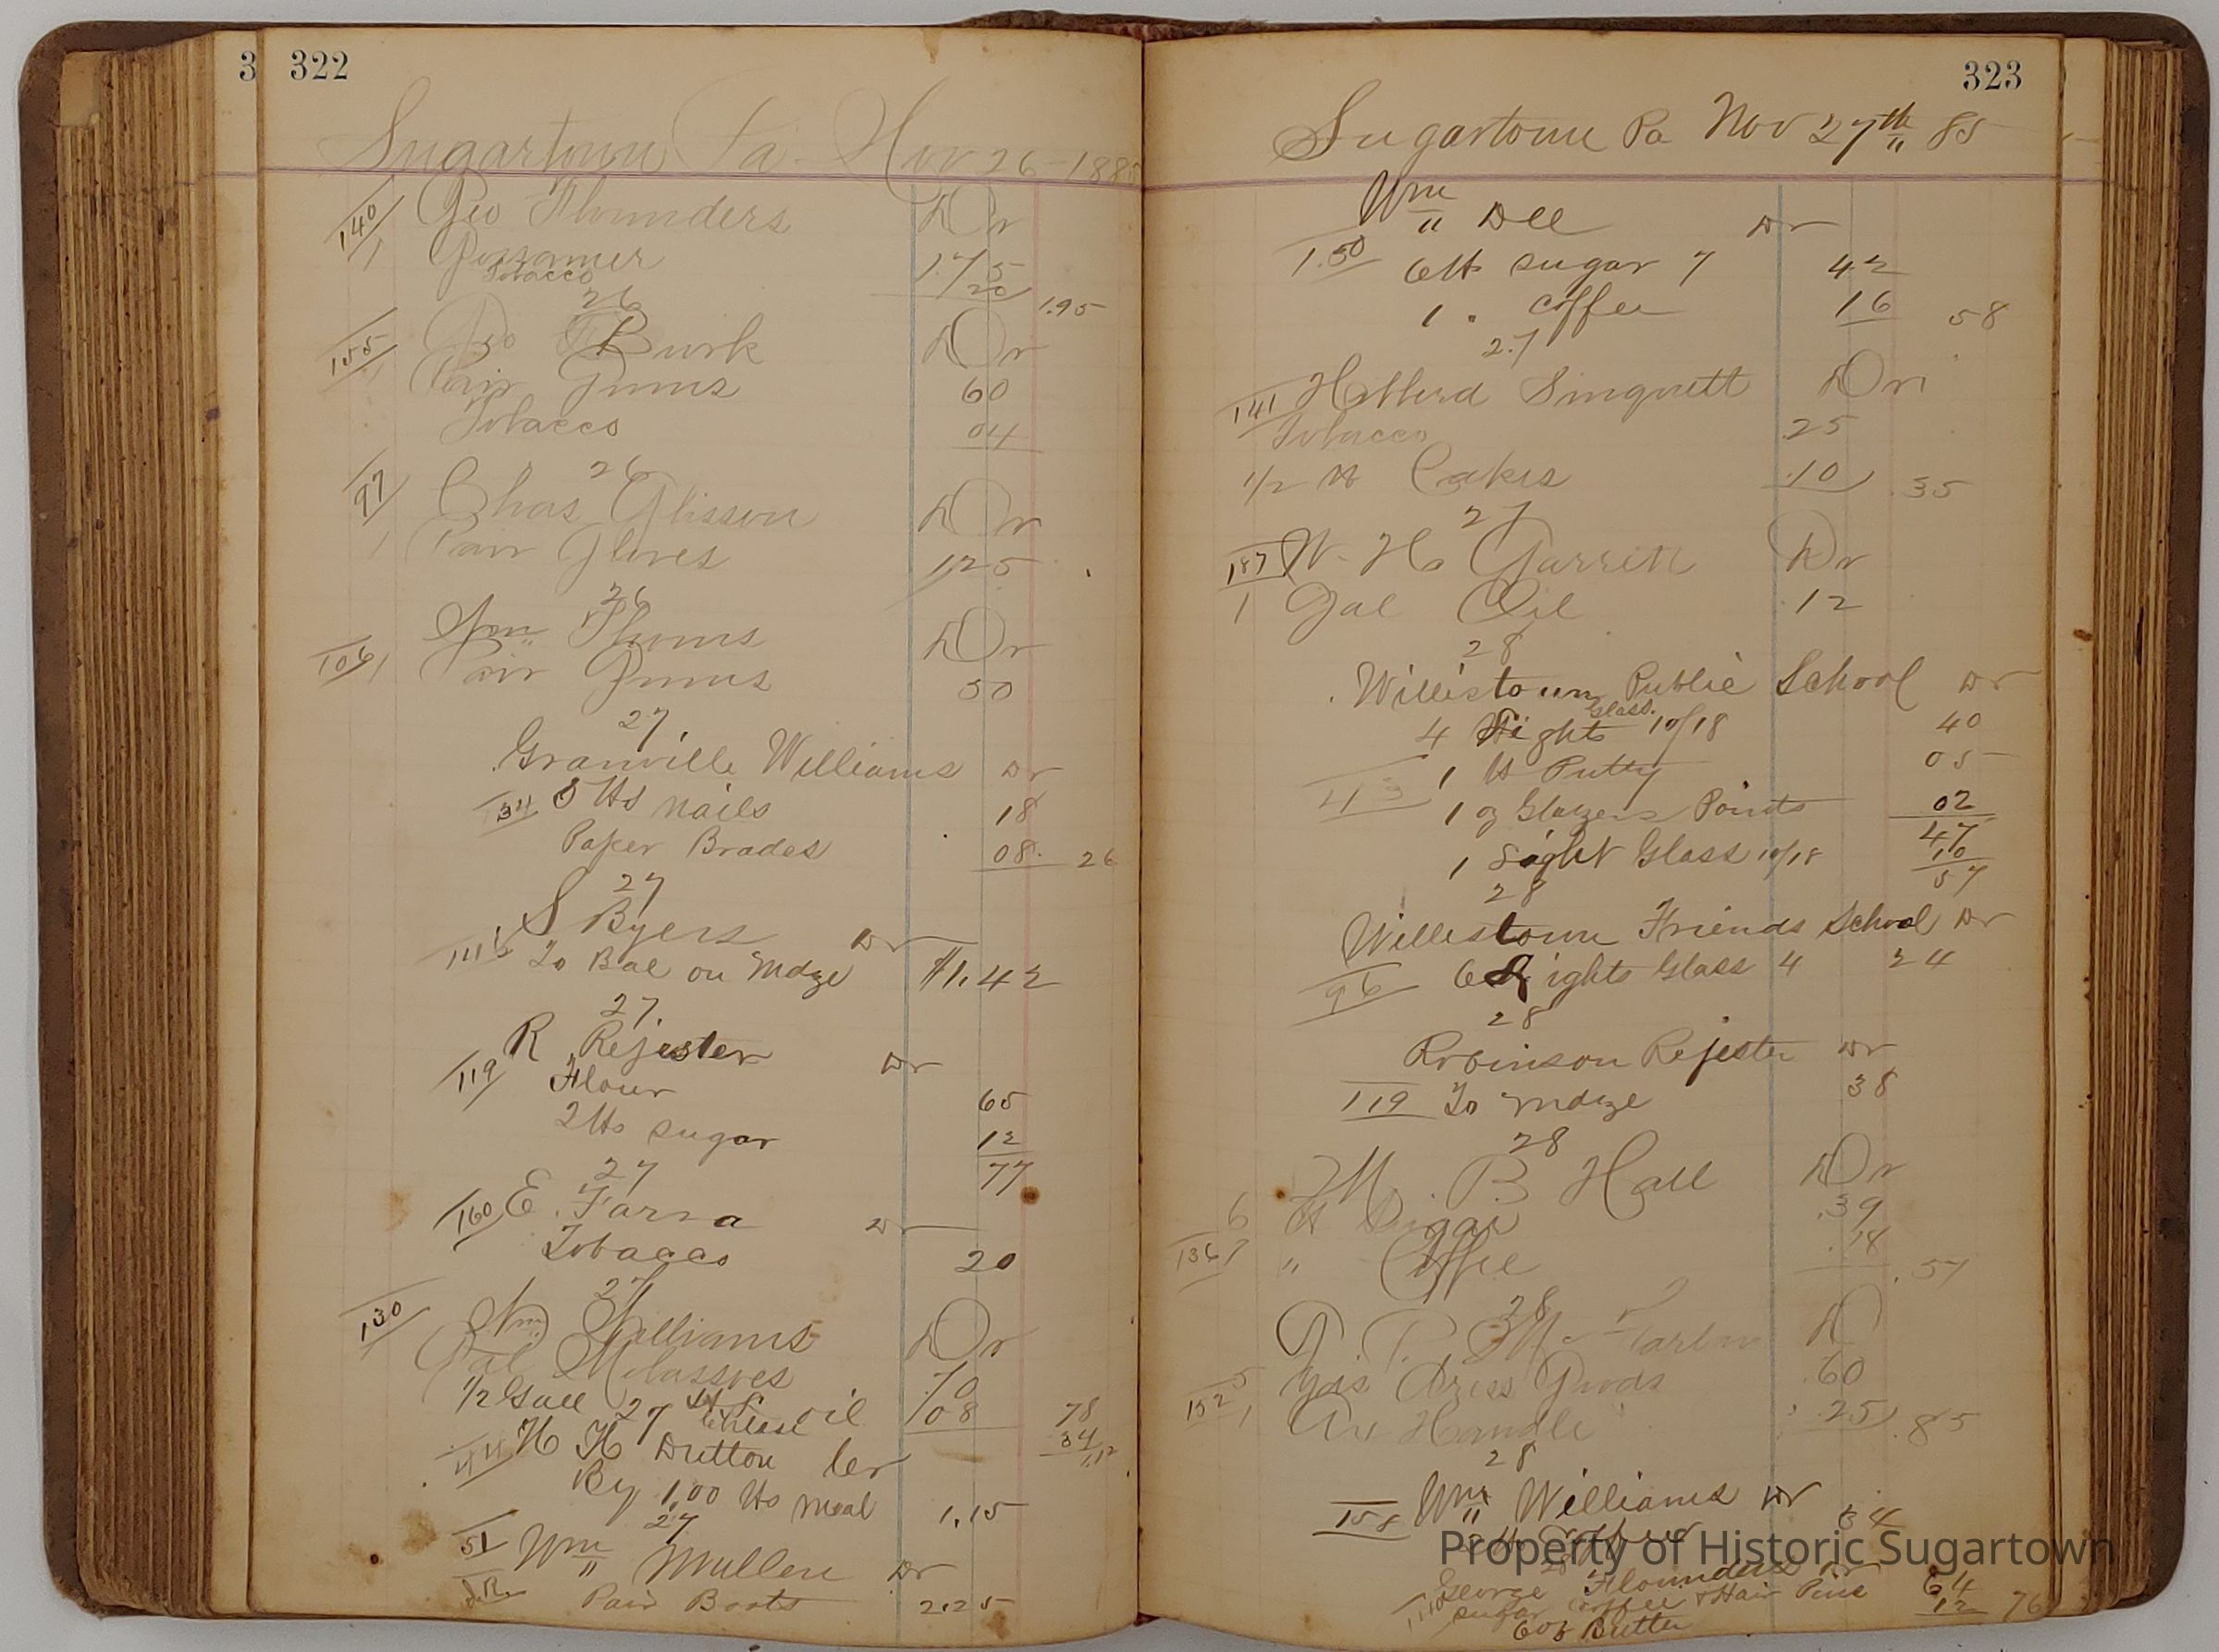 3 322
Sugartown Pa Nov 26 - 188
140 Geo Flounders Dr
1 Gossamer 1.75
Tobacco 20 1.95
26
155 Geo Burk Dr
1 Pair Gums 60
Tobacco 04
26
97 Chas Glisson Dr
1 Pair Gloves 1.25
26
Wm Thoms Dr
106 1 Pair Gums 50
27
Granville Williams Dr
34 5 lbs nails 18
Paper Brades 08 26
27
S Byers Dr
To Bal on Mdze $1.42
27.
R Rejester Dr
119 Flour 65
2 lbs sugar 12
77
27
160 E. Farra Dr
Tobacco 20
27
130 Wm Williams Dr
Gal Molasses 70
1/2 Gall oil 08 78
Cheese 34
1,12
27
44 H H Dutton Cr
By 1,00 lbs meal 1,15
27
51 Wm Mullen Dr
Pair Boots 2.25
323
Sugartown Pa Nov 27th 85
Wm Dee Dr
1.50 6 lb sugar 7 42
1 " Coffee 16 58
27
141 Singuett Dr
Tobacco 25
1/2 lb Cakes .10 35
27
187 W. H. Garrett Dr
1 Gal Oil .12
28
Willistown Public School Dr
4 Lights Glass 10/18 40
43 1 lb Putty 05
1 oz Glazers Points 02
47
1 Light Glass 10/18 10
57
28
Willistown Friends School Dr
96 6 Lights Glass 4 24
28
Robinson Rejester Dr
119 To Mdze 38
28
M. B Hall Dr
6 lb Sugar .39
136 " Coffee .18
.57
28
5 Yds Dress Goods .60
152 1 Axe Handle .25 .85
28
158 Wm Williams Dr
Property of Historic Sugartown
28
George Flounders Dr
Sugar Coffee & Hair Pins 64
6 oz Butter 12 76